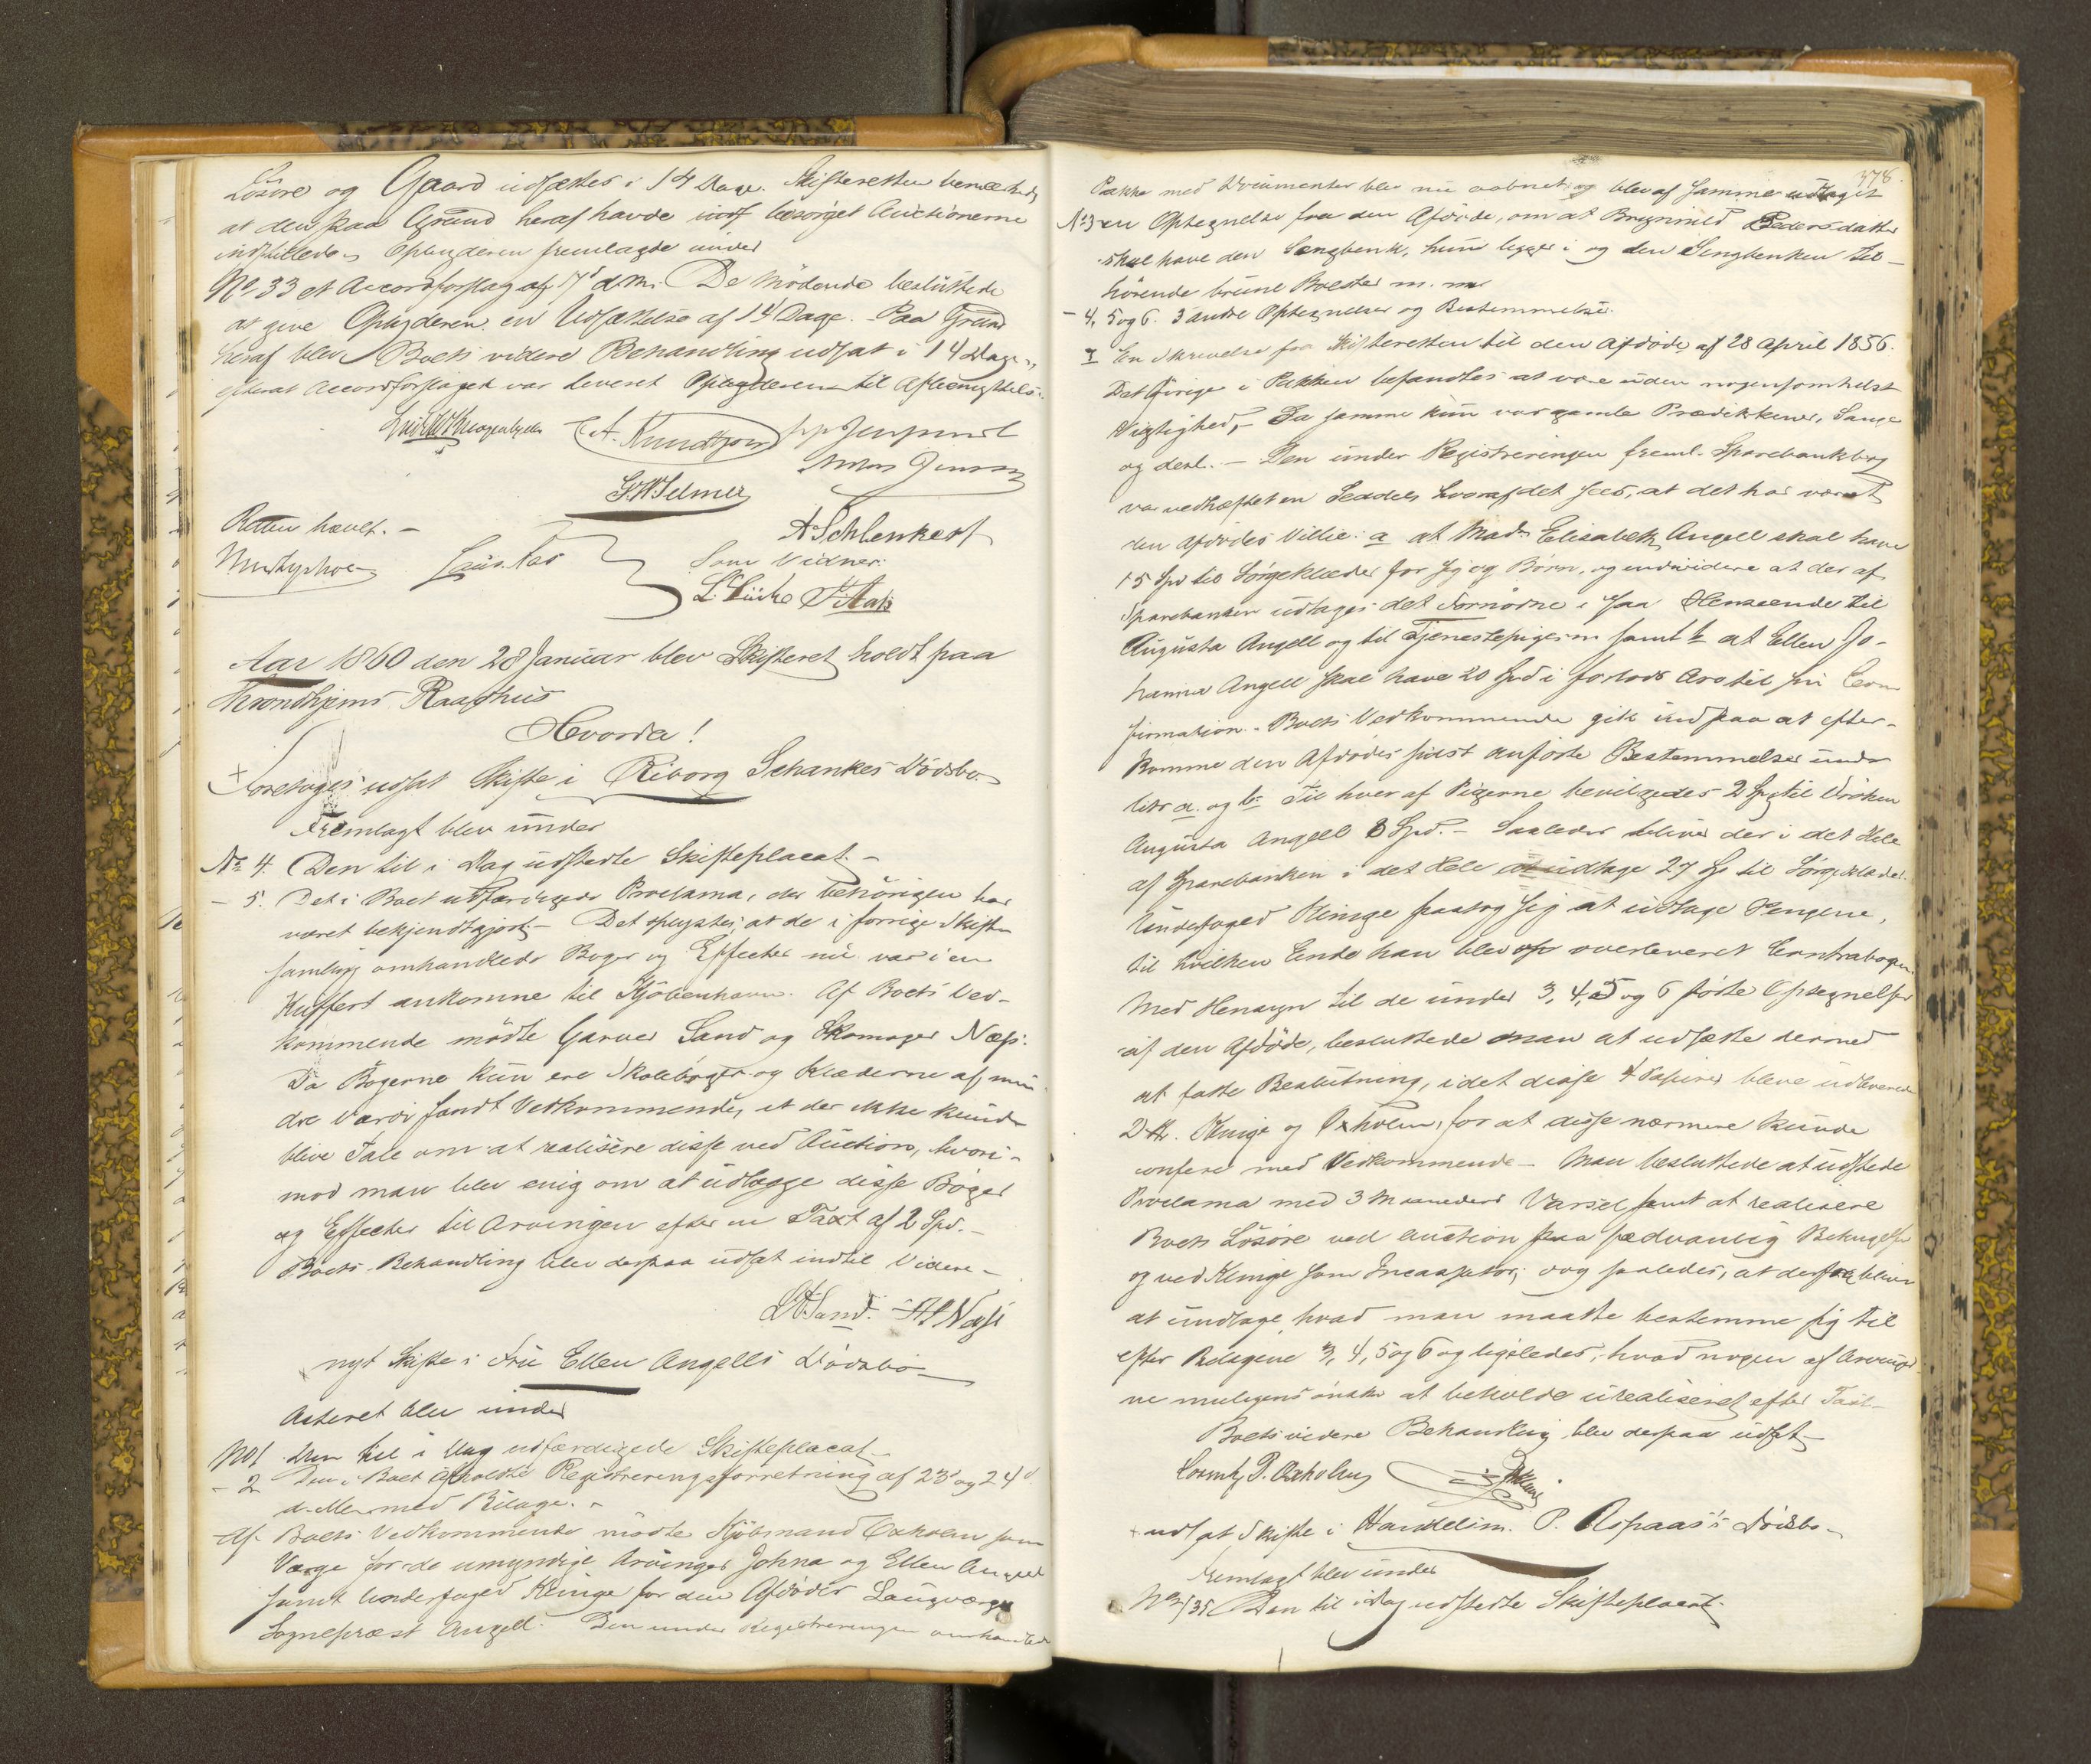 Løsøre og Gaard udsættes i 14 Dage. Skifteretten bemærkede
at den paa Grund heraf havde besørget Auctionerne
indstillede Opbyderen fremlagde under
No 33 et Accordforslag af 17 d.M. De Mødende besluttede
at give Opbyderen en Udsættelse af 14 Dage. Paa Grund
heraf blev Boets videre Behandling udsat i 14 Dage,
efterat Accordforslaget var leveret Opbyderen til Afbenyttelse.
A. Knudtzon
Jensen
Selmer
A Schlenkert
Retten hævet. –
Som Vidner:
L. Lücke
Aar 1860 den 28 Januar blev Skifteret holdt paa
Throndhjems Raadhus
Hvorda!
+ Foretoges udsat Skifte i Riborg Schankes Dødsbo
Fremlagt blev under
No 4. Den til i Dag udstedte Skifteplacat. –
– 5. Det i Boet udfærdigede Proclama, der behørigen har
været bekjendtgjort. – Det oplystes, at de i forrige Skifte
samling omhandlede Bøger og Effecter nu var i en
Kuffert ankomne til Kjøbenhavn. Af Boets Ved-
kommende mødte Garver Sand og Skomager Næss.
Da Bøgerne kun ere Skolebøger og Klæderne af min
dre Værdi fandt Vedkommende, at der ikke kunde
blive Tale om at realisere disse ved Auction, hvori-
mod man blev enig om at udlægge disse Bøger
og Effecter til Arvingen efter en Taxt af 2 Spd. –
Boets Behandling blev derpaa udsat indtil Videre –
Sand. Næss
nyt Skifte i Fru Ellen Angells Dødsbo –
Acteret blev under
No 1 Den til i Dag udfærdigede Skifteplacat –
– 2 Den i Boet afholdte Registreringsforretning af 23 og 24
d. M. med Bilage. –
Af Boets Vedkommende mødte Kjøbmand Oxholm som
Værge for de umyndige Arvinger Johna og Ellen Angell
samt Underfoged Klinge for den Afdødes Laugværge
Sognepræst Angell. Den under Registreringen omhandlede
378.
Pakke med Documenter blev nu aabnet og blev af samme udtaget
No 3 en Optegnelse fra den Afdøde, om at Brynnild Pedersdatter
skal have den Sengbenk, hun ligger i og den Sengbenken til-
hørende brune Bolster m. m.
– 4, 5 og 6. 3 andre Optegnelser og Bestemmelser.
En Skrivelse fra Skifteretten til den Afdøde af 28 April 1856.
Det Øvrige i Pakken befandtes at være uden nogensomhelst
Vigtighed, – Da samme kun var gamle Prædikkener, Sange
og desl. – Den under Registreringen freml. Sparebankbog
var vedhæftet en Seddel, hvoraf det sees, at det har været
den Afdødes Villie: a at Mad. Elisabeth Angell skal have
15 Spd til Sørgeklæder for sig og Børn, og endvidere at der af
Sparebanken udtages det Fornødne i saa Henseende til
Augusta Angell og til Tjenestepigerne samt b at Ellen Jo-
hanna Angell skal have 20 Spd i forlods Arv til sin Con
firmation. – Boets Vedkommende gik ind paa at efter-
komme den Afdødes sidst anførte Bestemmelser under
litr a. og b. Til hver af Pigerne bevilgedes 2 Spd til Frøken
Augusta Angell 8 Spd. – Saaledes bliver der i det Hele
af Sparebanken i det Hele at udtage 27 Sp til Sørgeklæder.
Underfoged Klinge paatog sig at udtage Pengene,
til hvilken Ende han blev overleveret Contrabogen.
Med Hensyn til de under 3, 4, 5 og 6 førte Optegnelser
af den Afdøde, besluttede man at udsætte dermed
at fatte Beslutning, idet disse 4 Papirer bleve udleverede
D.Hr. Klinge og Oxholm, for at disse nærmere kunde
confere med Vedkommende – Man besluttede at udstede
Proclama med 3 Maaneders Varsel samt at realisere
Boets Løsøre ved Auction paa sædvanlig Betingelser
og ved Klinge som Incassator; dog saaledes, at derfra bliver
at undtage, hvad man maatte bestemme sig til
efter Bilagene 3, 4, 5 og 6 og ligeledes, hvad nogen af Arvinger
ne muligens ønsker at beholde urealiseret efter Taxt –
Boets videre Behandling blev derpaa udsat –
P. Oxholm
+ udsat Skifte i Handelsm. P. Aspaas's Dødsbo –
Fremlagt blev under
No 35 Den til i Dag udstedte Skifteplacat.